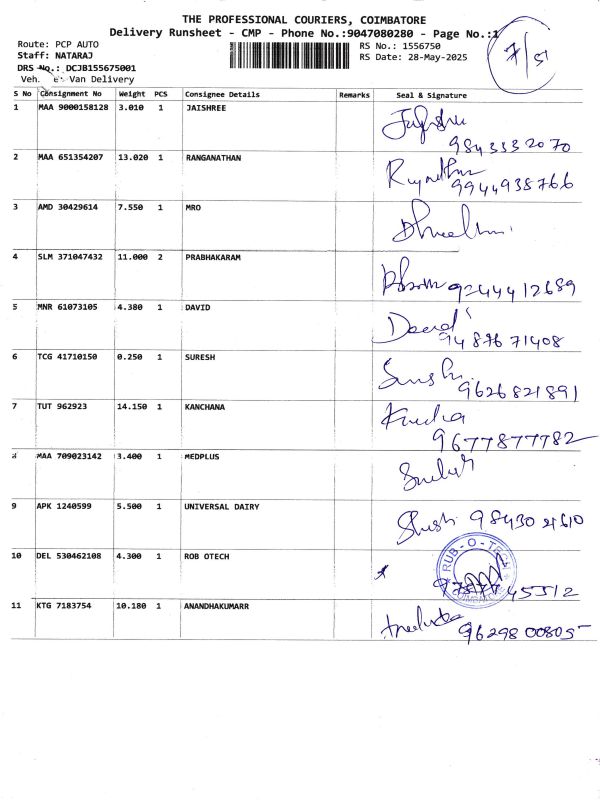 THE PROFESSIONAL COURIERS, COIMBATORE
Delivery Runsheet - CMP - Phone No.:9047080280 - Page No.:1
Route: PCP AUTO
RS No.: 1556750
Staff: NATARAJ
RS Date: 28-May-2025
DRS No.: DCJB155675001
Veh. Van Delivery
S No Consignment No Weight PCS Consignee Details Remarks Seal & Signature
1 MAA 9000158128 3.010 1 JAISHREE
9843332070
2 MAA 651354207 13.020 1 RANGANATHAN
9944938766
3 AMD 30429614 7.550 1 MRO
4 SLM 371047432 11.000 2 PRABHAKARAM
9244412689
5 MNR 61073105 4.380 1 DAVID
David
9487671408
6 TCG 41710150 0.250 1 SURESH
9626821891
7 TUT 962923 14.150 1 KANCHANA
9677877782
8 MAA 709023142 3.400 1 MEDPLUS
9 APK 1240599 5.500 1 UNIVERSAL DAIRY
10 DEL 530462108 4.300 1 ROB OTECH
RUB-O-TECH
11 KTG 7183754 10.180 1 ANANDHAKUMARR
9629800805